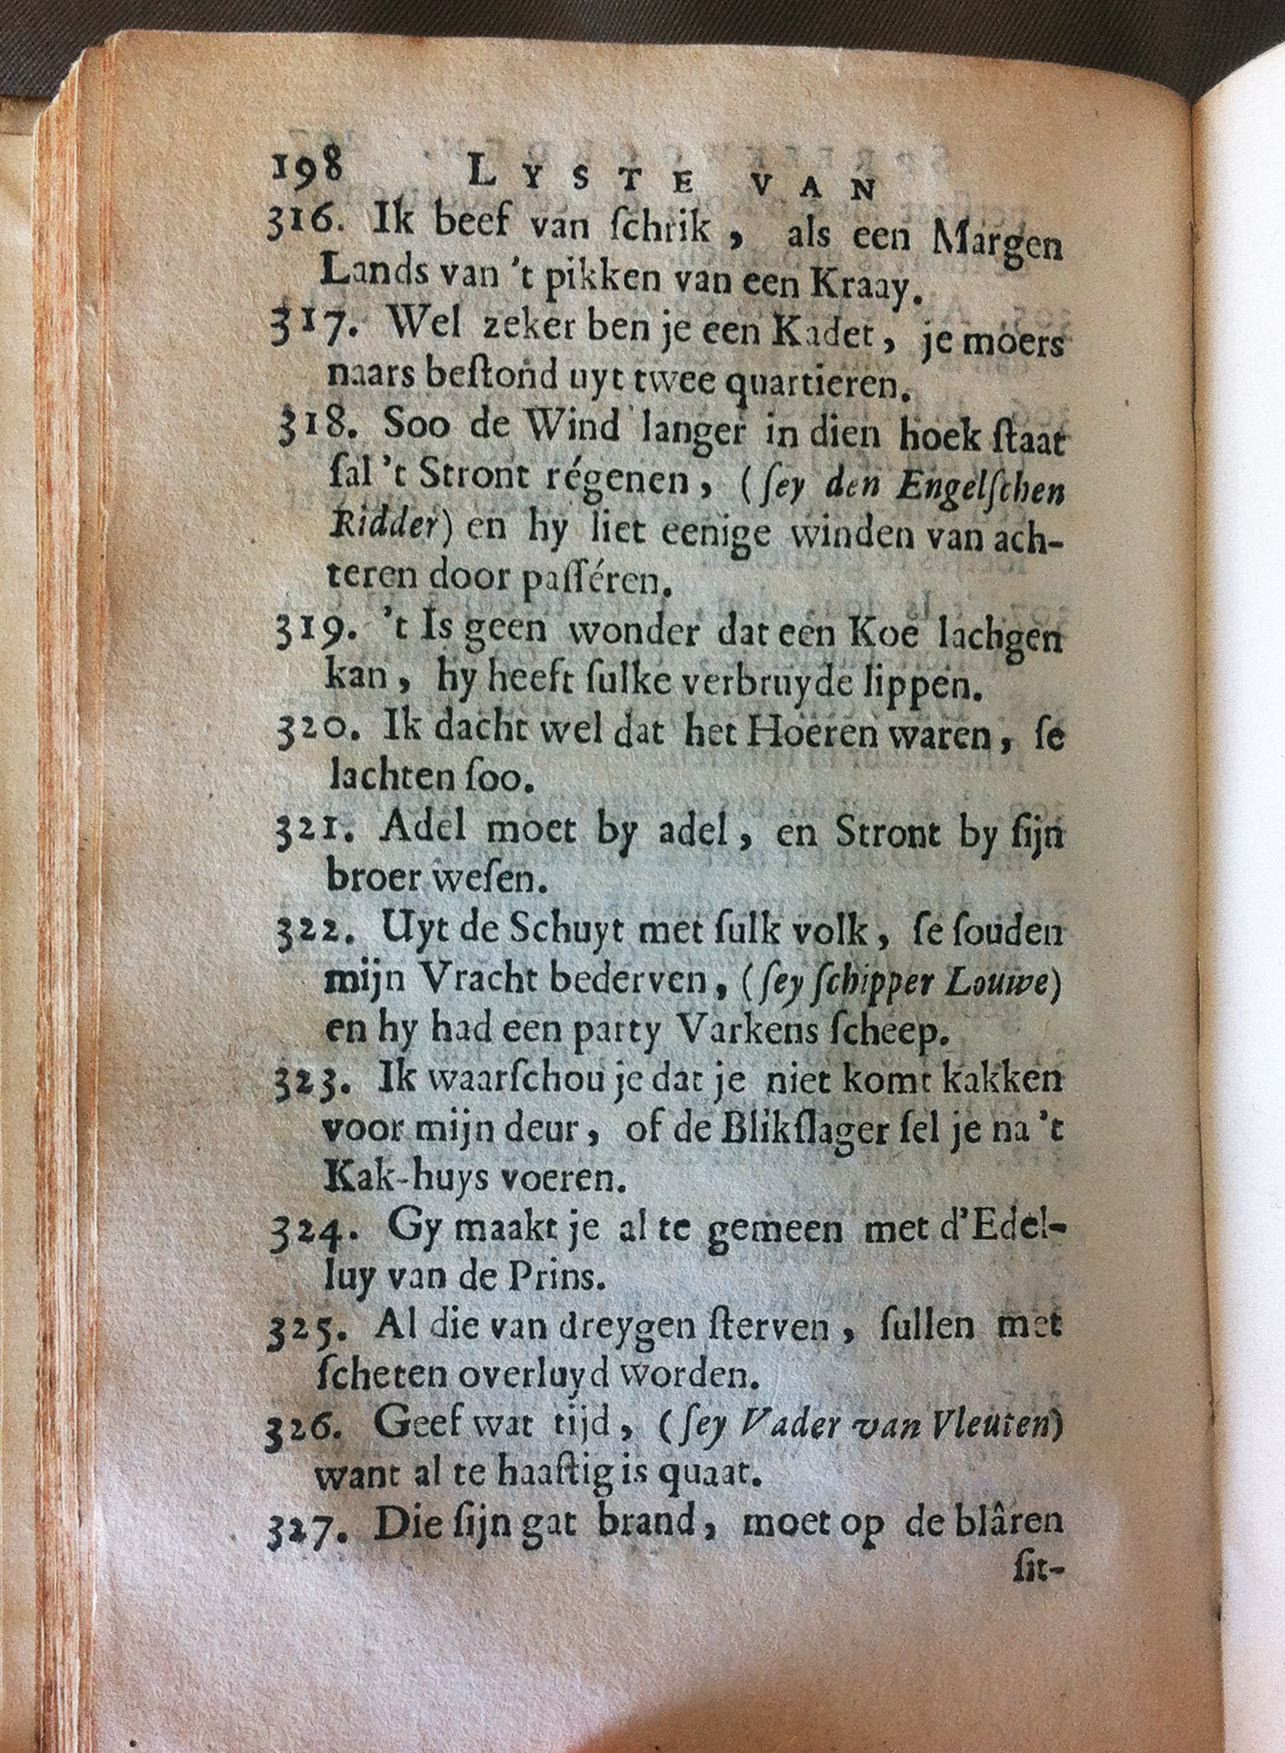 198 LYSTE VAN
316. Ik beef van ſchrik, als een Margen
Lands van 't pikken van een Kraay.
317. Wel zeker ben je een Kadet, je moers
naars beſtond uyt twee quartieren.
318. Soo de Wind langer in dien hoek ſtaat
ſal 't Stront régenen, (ſey den Engelſchen
Ridder) en hy liet eenige winden van ach-
teren door paſſéren.
319. 't Is geen wonder dat een Koe lachgen
kan, hy heeft ſulke verbruyde lippen.
320. Ik dacht wel dat het Hoeren waren, ſe
lachten ſoo.
321. Adel moet by adel, en Stront by ſijn
broer weſen.
322. Uyt de Schuyt met ſulk volk, ſe ſouden
mijn Vracht bederven, (ſey ſchipper Louwe)
en hy had een party Varkens ſcheep.
323. Ik waarſchou je dat je niet komt kakken
voor mijn deur, of de Blikſlager ſel je na 't
Kak-huys voeren.
324. Gy maakt je al te gemeen met d'Edel-
luy van de Prins.
325. Al die van dreygen ſterven, ſullen met
ſcheten overluyd worden.
326. Geef wat tijd, (ſey Vader van Vleuten)
want al te haaſtig is quaat.
327. Die ſijn gat brand, moet op de blâren
ſit-